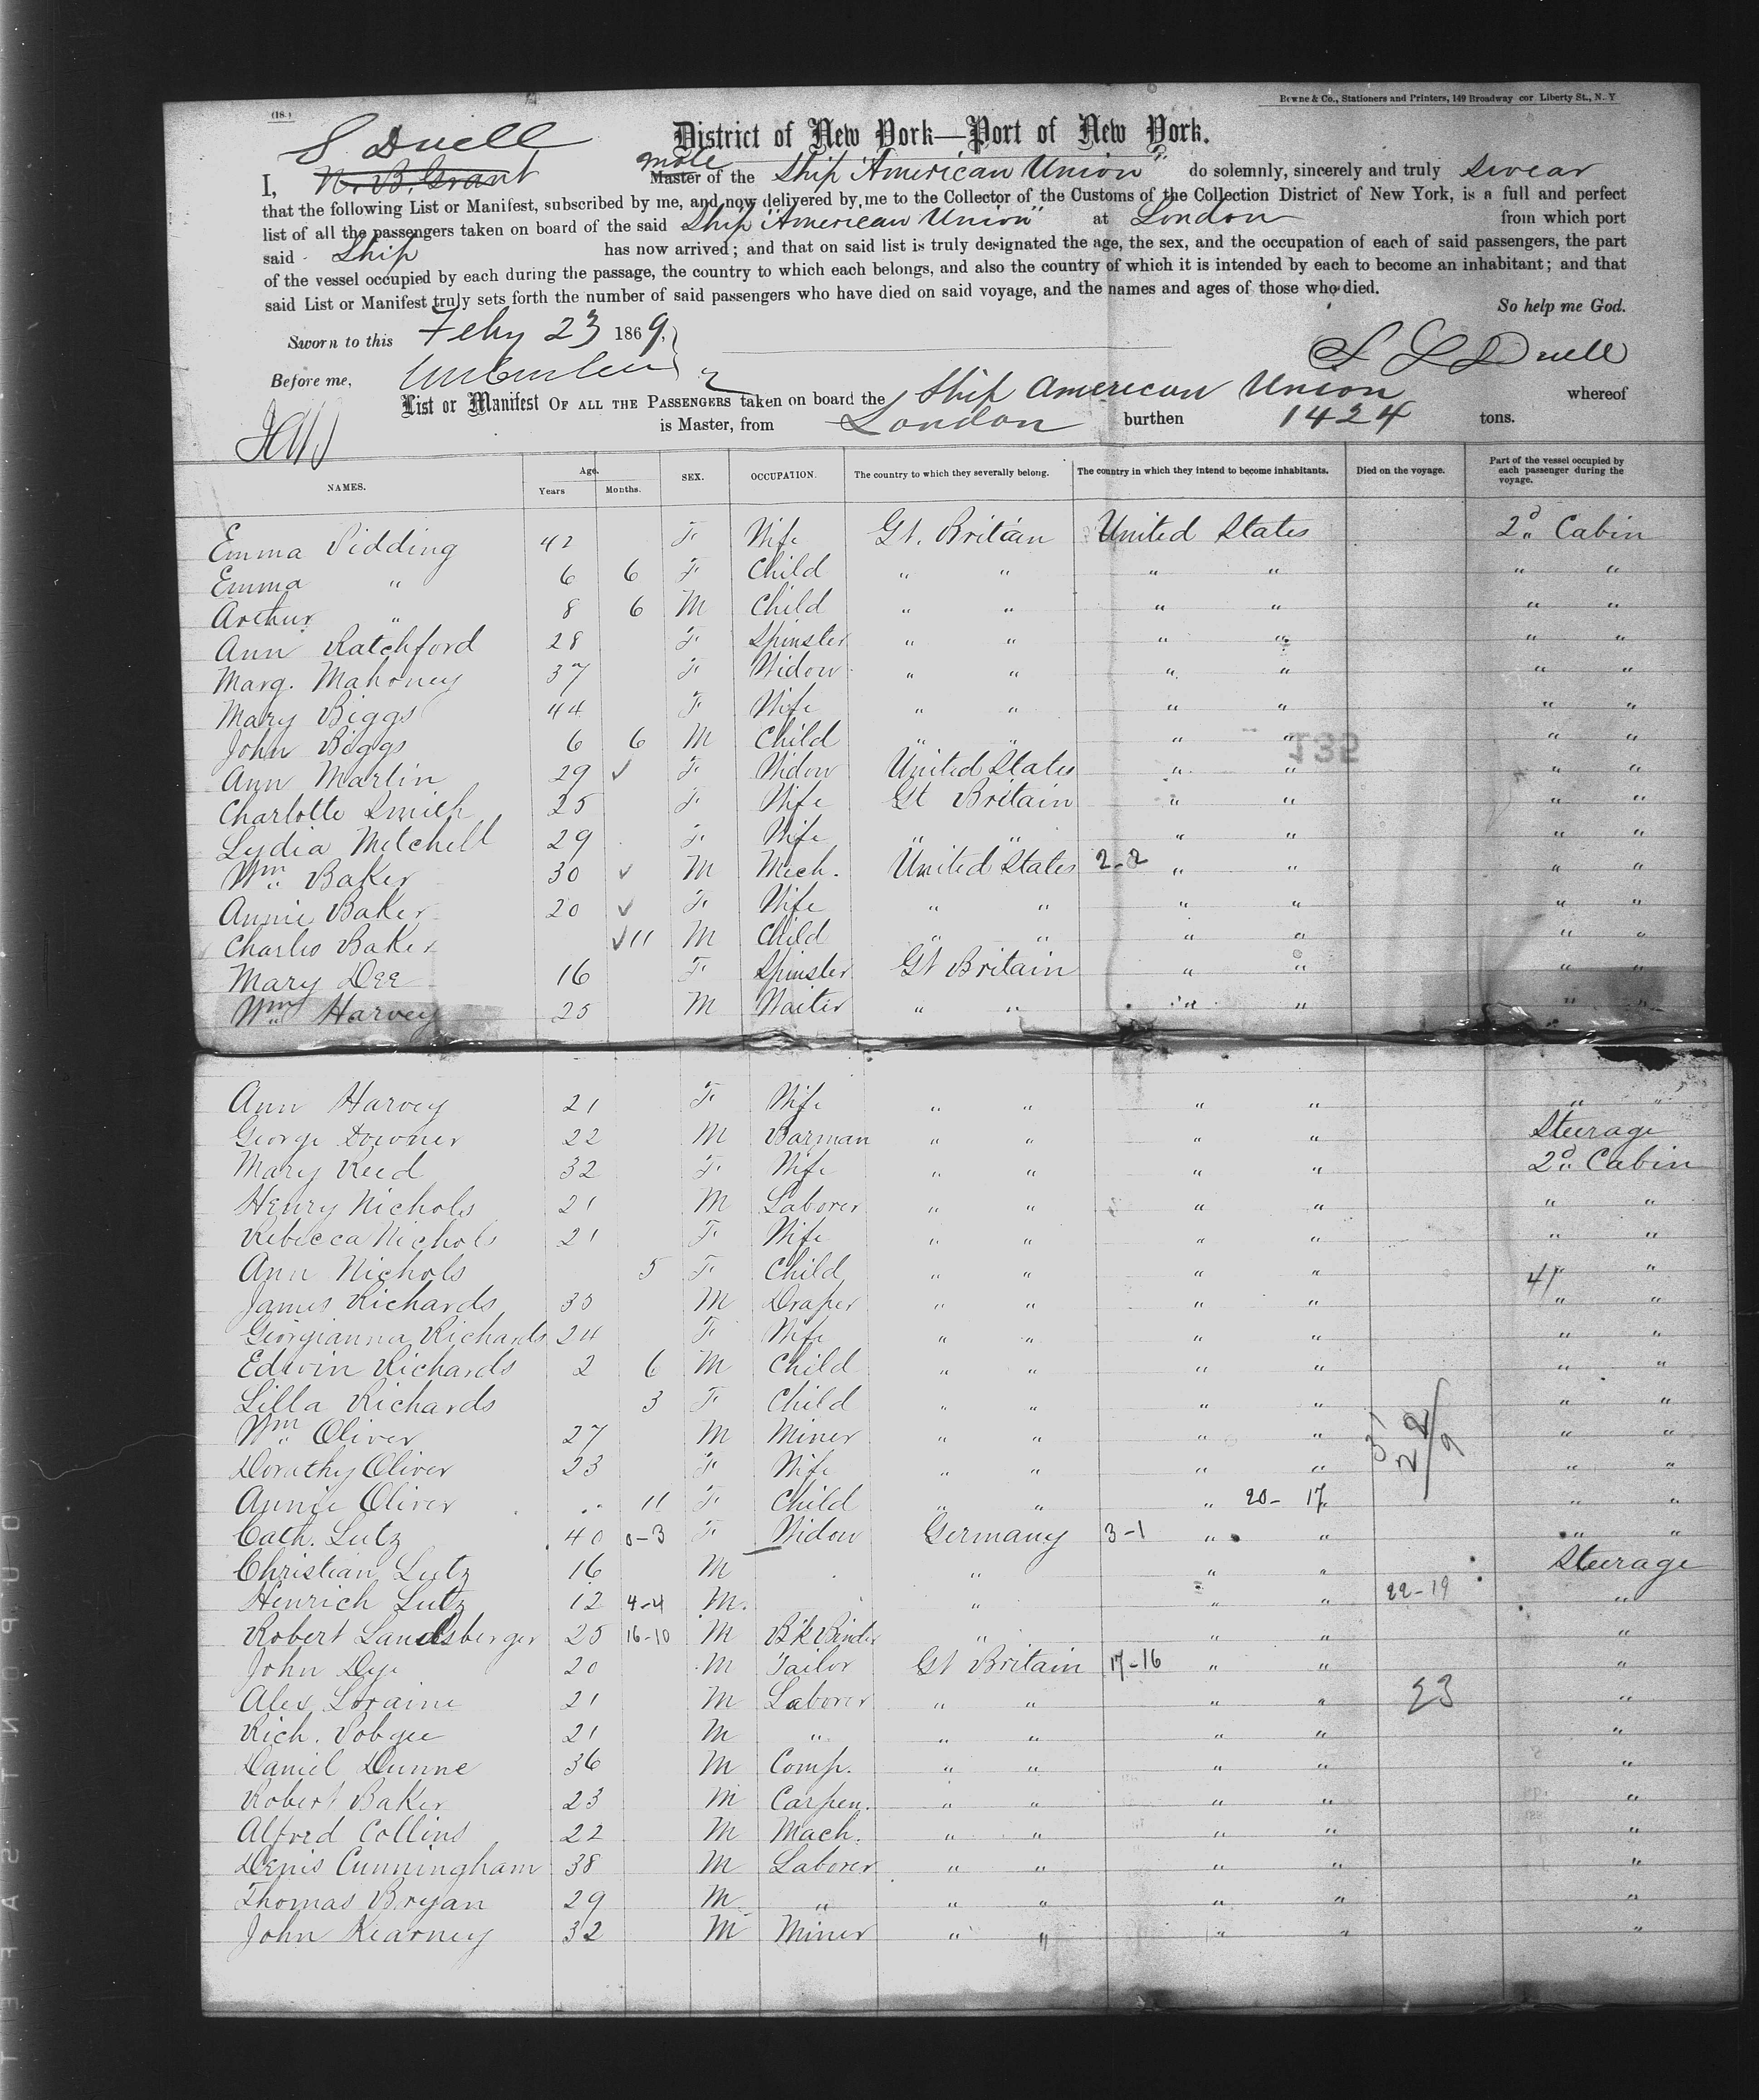 Bowne & Co., Stationers and Printers, 149 Broadway cor Liberty St., N. Y
(18.)
S Duell
District of New York—Port of New York.
I, N. B. Grant Mate Master of the Ship "American Union" do solemnly, sincerely and truly swear
that the following List or Manifest, subscribed by me, and now delivered by me to the Collector of the Customs of the Collection District of New York, is a full and perfect
list of all the passengers taken on board of the said Ship "American Union" at London from which port
said Ship has now arrived; and that on said list is truly designated the age, the sex, and the occupation of each of said passengers, the part
of the vessel occupied by each during the passage, the country to which each belongs, and also the country of which it is intended by each to become an inhabitant; and that
said List or Manifest truly sets forth the number of said passengers who have died on said voyage, and the names and ages of those who died.
So help me God.
Sworn to this Feby 23 1869,
S L Duell
Before me,
List or Manifest OF ALL THE PASSENGERS taken on board the Ship American Union whereof
is Master, from London burthen 1424 tons.
NAMES. Age. Years Months. SEX. OCCUPATION. The country to which they severally belong. The country in which they intend to become inhabitants. Died on the voyage. Part of the vessel occupied by each passenger during the voyage.
Emma Pidding 42 F Wife Gt. Britain United States 2d Cabin
Emma " 6 6 F Child " " " " " "
Arthur " 8 6 M Child " " " " " "
Ann Ratchford 28 F Spinster " " " " " "
Marg. Mahoney 37 F Widow " " " " " "
Mary Biggs 44 F Wife " " " " " "
John Biggs 6 6 M Child " " " " " "
135
Ann Martin 29 ✓ F Widow United States " " " "
Charlotte Smith 25 F Wife Gt Britain " " " "
Lydia Mitchell 29 F Wife " " " " " "
Wm Baker 30 ✓ M Mech. United States 2-2 " " " "
Annie Baker 20 ✓ F Wife " " " " " "
Charles Baker ✓ 11 M Child " " " " " "
Mary Dee 16 F Spinster Gt Britain " " " "
Wm Harvey 25 M Waiter " " " " " "
Ann Harvey 21 F Wife " " " " " "
George Downer 22 M Barman " " " " Steerage
Mary Reed 32 F Wife " " " " 2d Cabin
Henry Nichols 21 M Laborer " " " " " "
Rebecca Nichols 21 F Wife " " " " " "
Ann Nichols 5 F Child " " " " " "
41
James Richards 35 M Draper " " " " " "
Georgianna Richards 24 F Wife " " " " " "
Edwin Richards 2 6 M Child " " " " " "
Lilla Richards 3 F Child " " " " " "
Wm Oliver 27 M Miner " " " " " "
Dorathy Oliver 23 F Wife " " " " " "
Annie Oliver 11 F Child " " " 20- 17 " " "
Cath. Lutz 40 0-3 F Widow Germany 3-1 " " " "
Christian Lutz 16 M " " " Steerage
Henrich Lutz 12 4-4 M. " " " 22-19 "
Robert Landsberger 25 16-10 M Bk Binder " " " "
John Dye 20 M Tailor Gt Britain 17-16 " " "
Alex Loraine 21 M Laborer " " " " 23 "
Rich. Pobgee 21 M " " " " " "
Daniel Dunne 36 M Comp. " " " " "
Robert Baker 23 M Carpen. " " " " "
Alfred Collins 22 M Mach. " " " " "
Denis Cunningham 38 M Laborer " " " " "
Thomas Bryan 29 M " " " " " "
John Kearney 32 M Miner " " " " "